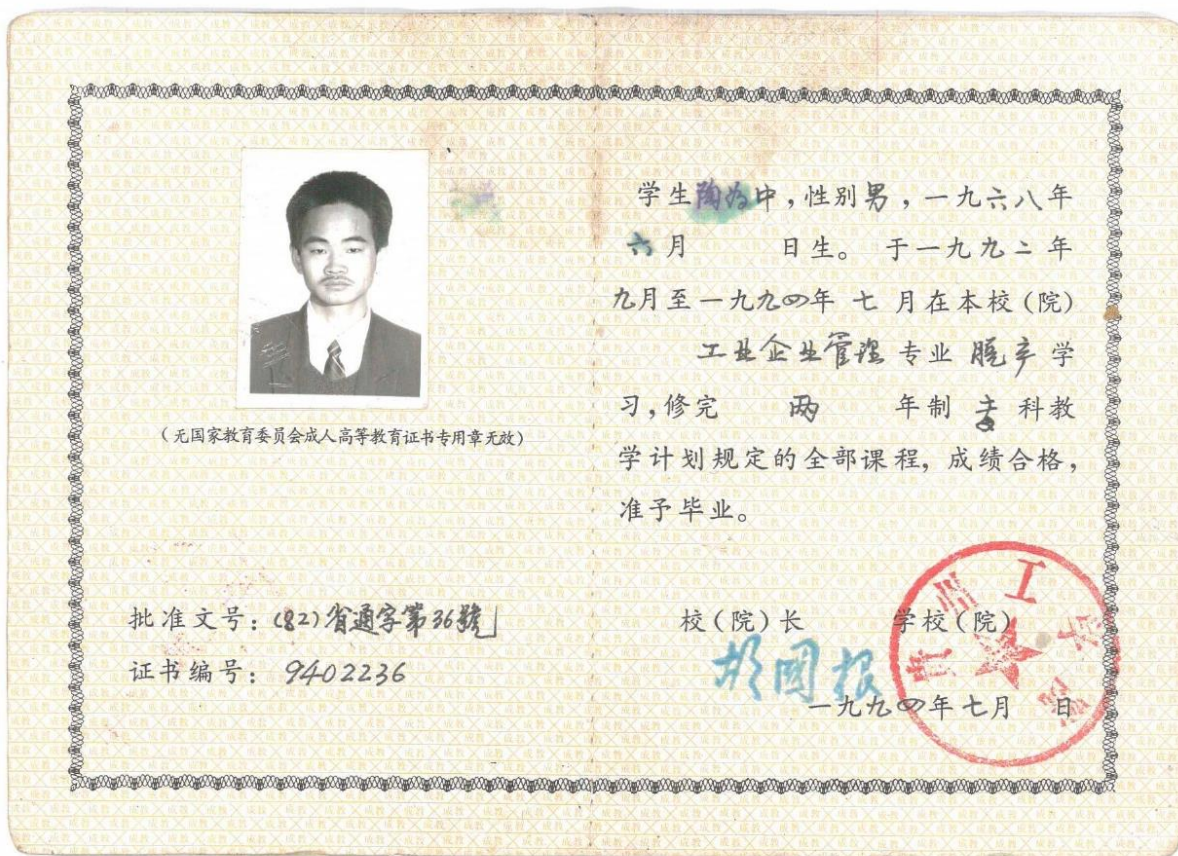 (无国家教育委员会成人高等教育证书专用章无效)
批准文号：(82)省通字第36號
证书编号：9402236
学生陶为中，性别男，一九六八年
六月 日生。于一九九二年
九月至一九九四年 七 月在本校(院)
工业企业管理 专业 脱产 学
习，修完 两 年制 专 科教
学计划规定的全部课程，成绩合格，
准予毕业。
校(院)长 学校(院)
一九九四年七月 日
贵州工学院